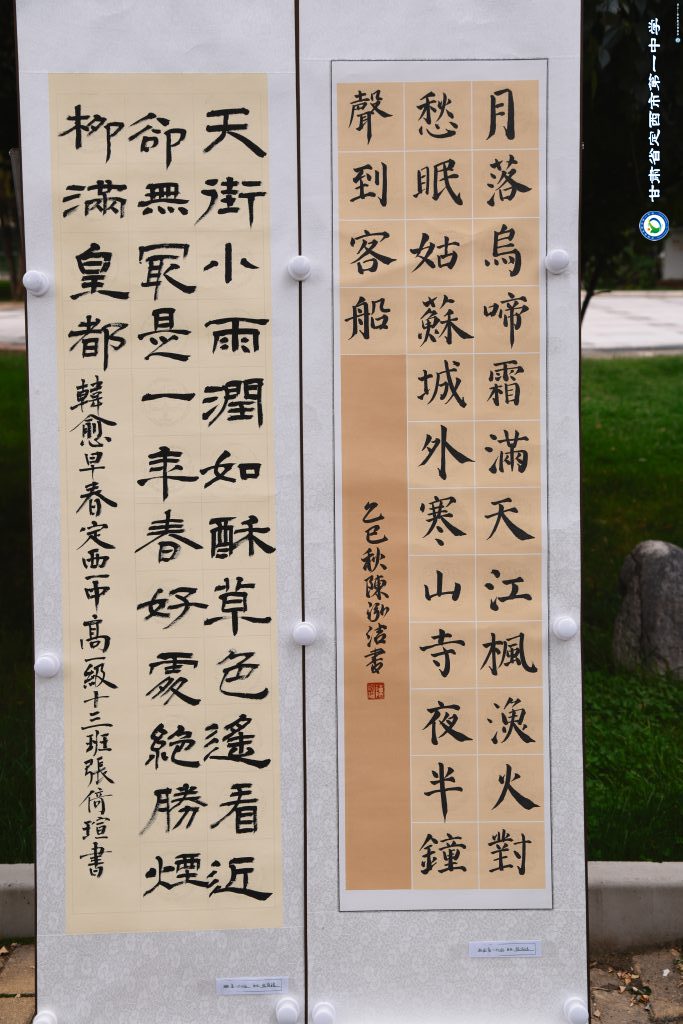 月落烏啼霜滿天江楓漁火對
愁眠姑蘇城外寒山寺夜半鐘
聲到客船
乙巳秋陳泓洁書
天街小雨潤如酥草色遙看近
卻無最是一年春好處絕勝煙
柳滿皇都
韓愈早春定西一中高一級十三班張倚瑄書
甘肃省定西市第一中学